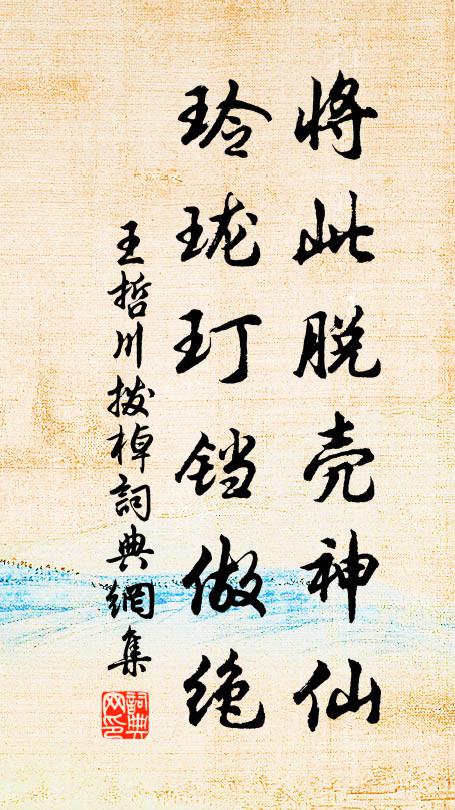 將此脱壳神仙
玲珑玎铛做绝
王哲川拨棹詞典網集
詞典網印